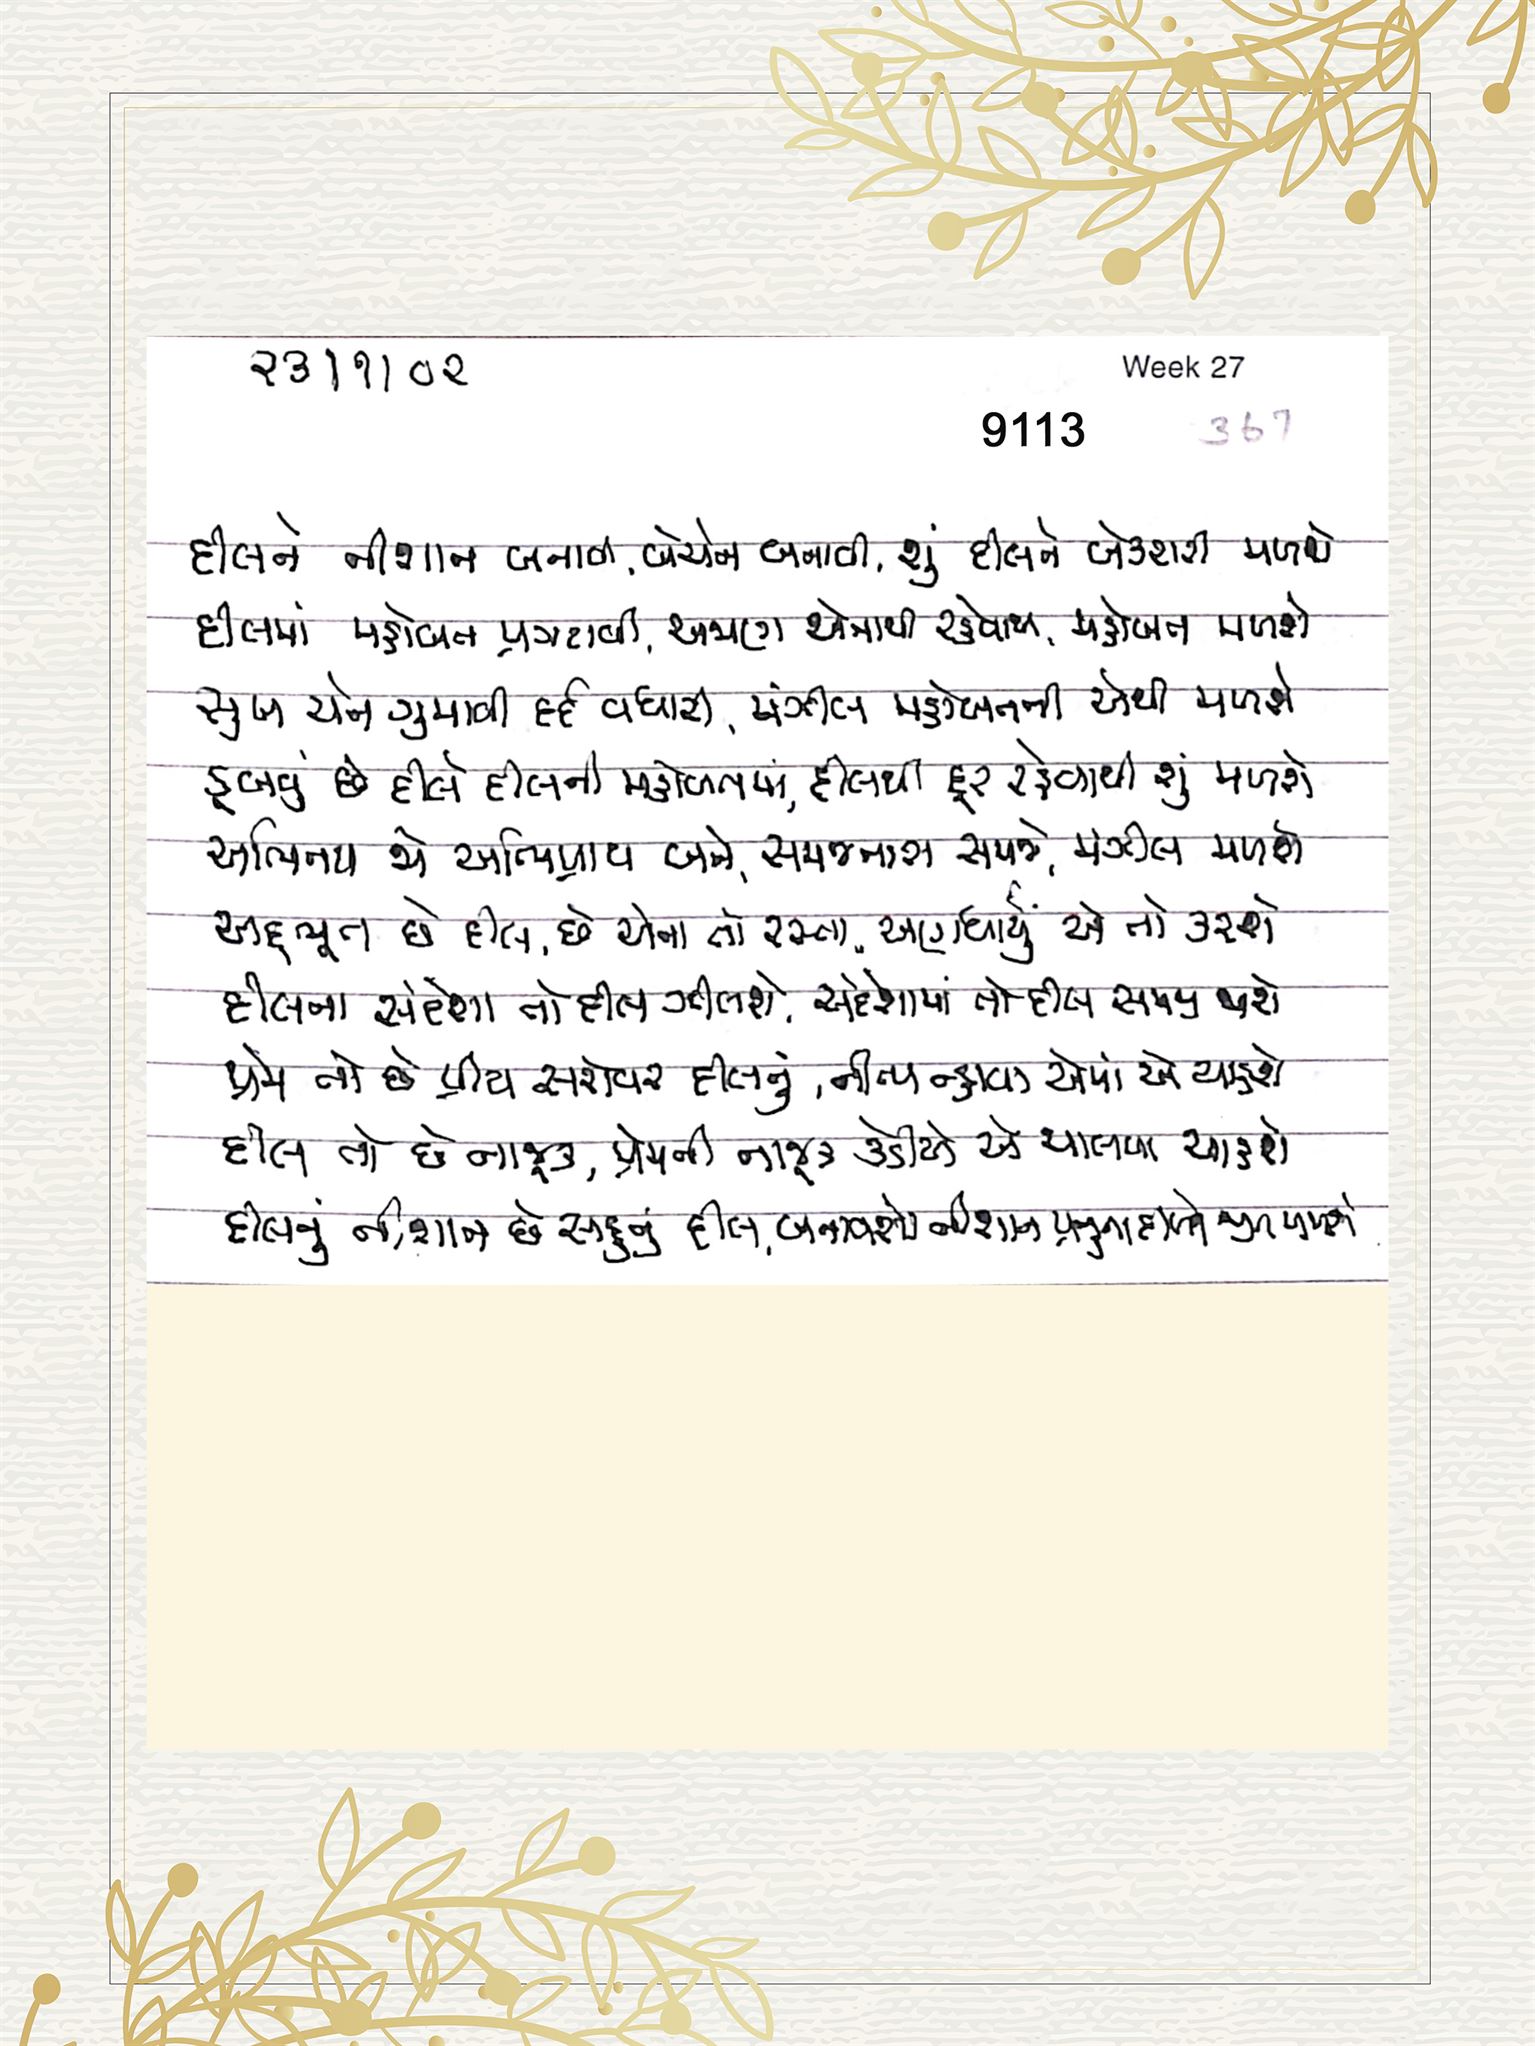 ૨૩|૧|૦૨
Week 27
9113
367
દીલને નીશાન બનાવી, બેચેન બનાવી, શું દીલને બેકરારી મળશે
દીલમાં મહોબત પ્રગટાવી, અજાણ એનાથી રહેવાથી, મહોબત મળશે
સુખ ચેન ગુમાવી દર્દ વધારી, મંઝીલ મહોબતની એથી મળશે
ડૂબવું છે દીલે દીલની મહોબતમાં, દીલથી દૂર રહેવાથી શું મળશે
અભિનય જો અભિપ્રાય બને, સમજનારા સમજે, મંઝીલ મળશે
અદ્દભૂત છે દીલ, છે એના તો રસ્તા, અણધાર્યું એ તો કરશે
દીલના સંદેશા તો દીલ ઝીલશે, સંદેશામાં તો દીલ સમય થશે
પ્રેમ તો છે પ્રીય સરોવર દીલનું, નીત્ય ન્હાવા એમાં એ ચાહશે
દીલ તો છે નાજૂક, પ્રેમની નાજૂક કેડીએ એ ચાલવા ચાહશે
દીલનું નીશાન છે સહુનું દીલ, બનાવશો નીશાન પ્રભુના દીલને જીત મળશે